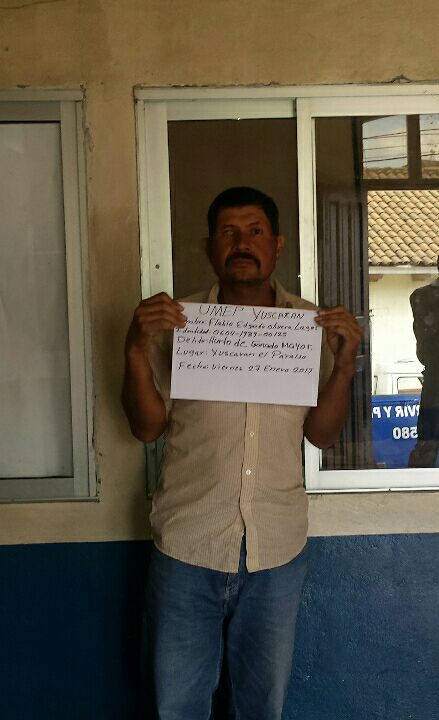 UMEP YUSCARAN
Nombre: Flabio Edgardo Olvera Lagos
Identidad: 0604-1989-00125
Delito: Hurto de Ganado Mayor.
Lugar: Yuscaran el Paraiso
Fecha: Viernes 27 Enero 2017
VIR Y P
580